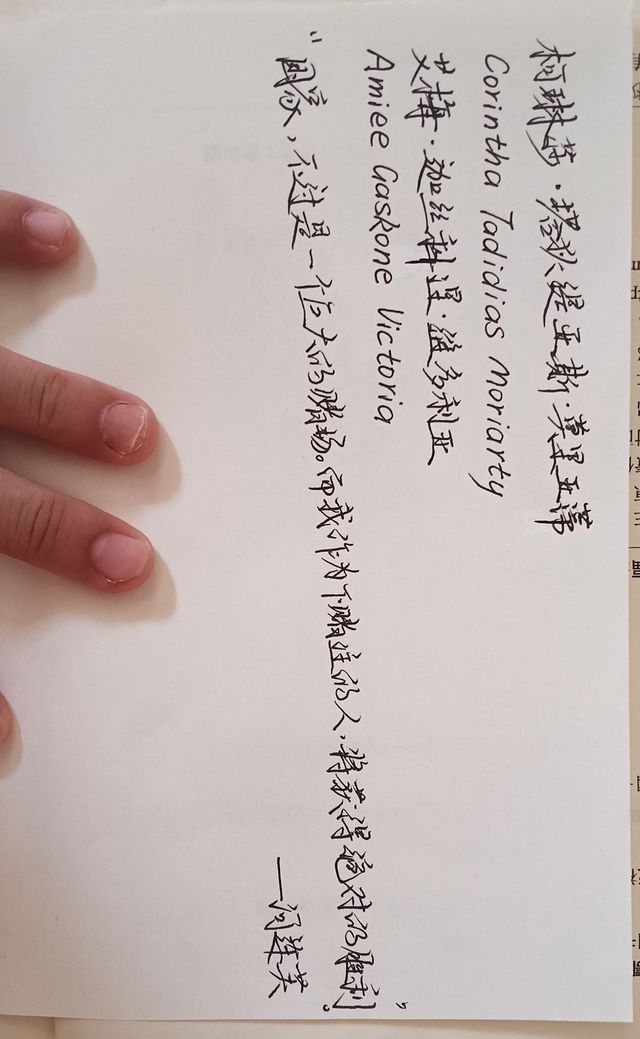 柯琳莎·塔狄缇亚斯·莫里亚蒂
Corintha Tadidias Moriarty
艾梅·迦丝科涅·维多利亚
Amiee Gaskone Victoria
“国家，不过是一个巨大的赌场。而我作为下赌注的人，将获得绝对的胜利。”